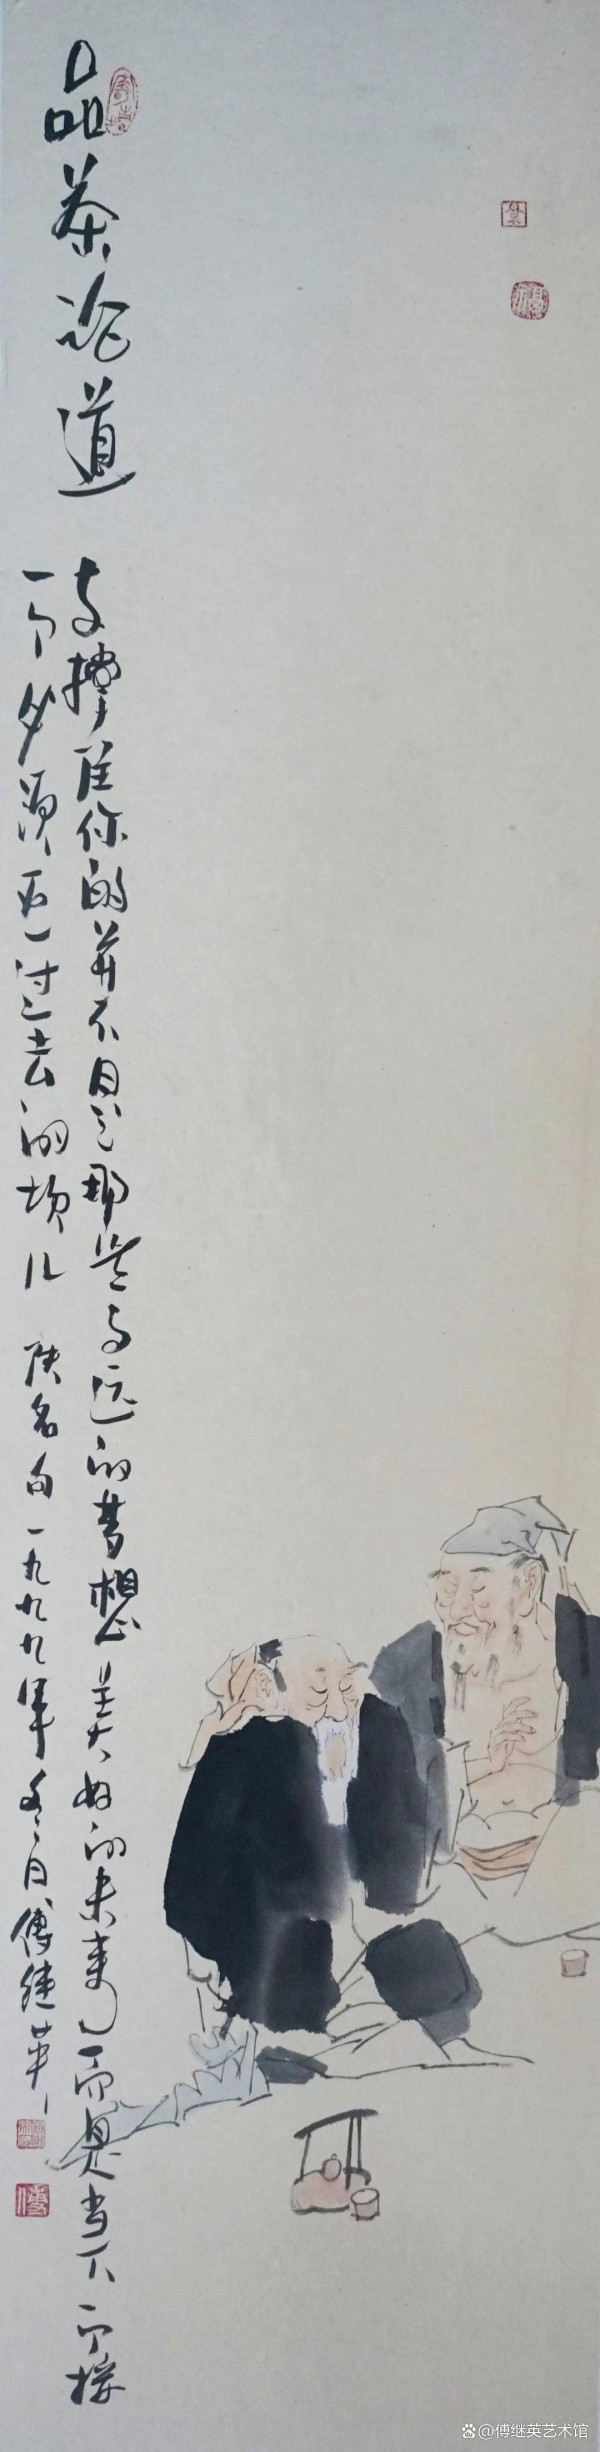 品茶论道
支撑住你的并不是那些高远的梦想美好的未来而是当下一个接
一个必须过去的坎儿 佚名句一九九九年冬日傅继英
傅
@傅继英艺术馆